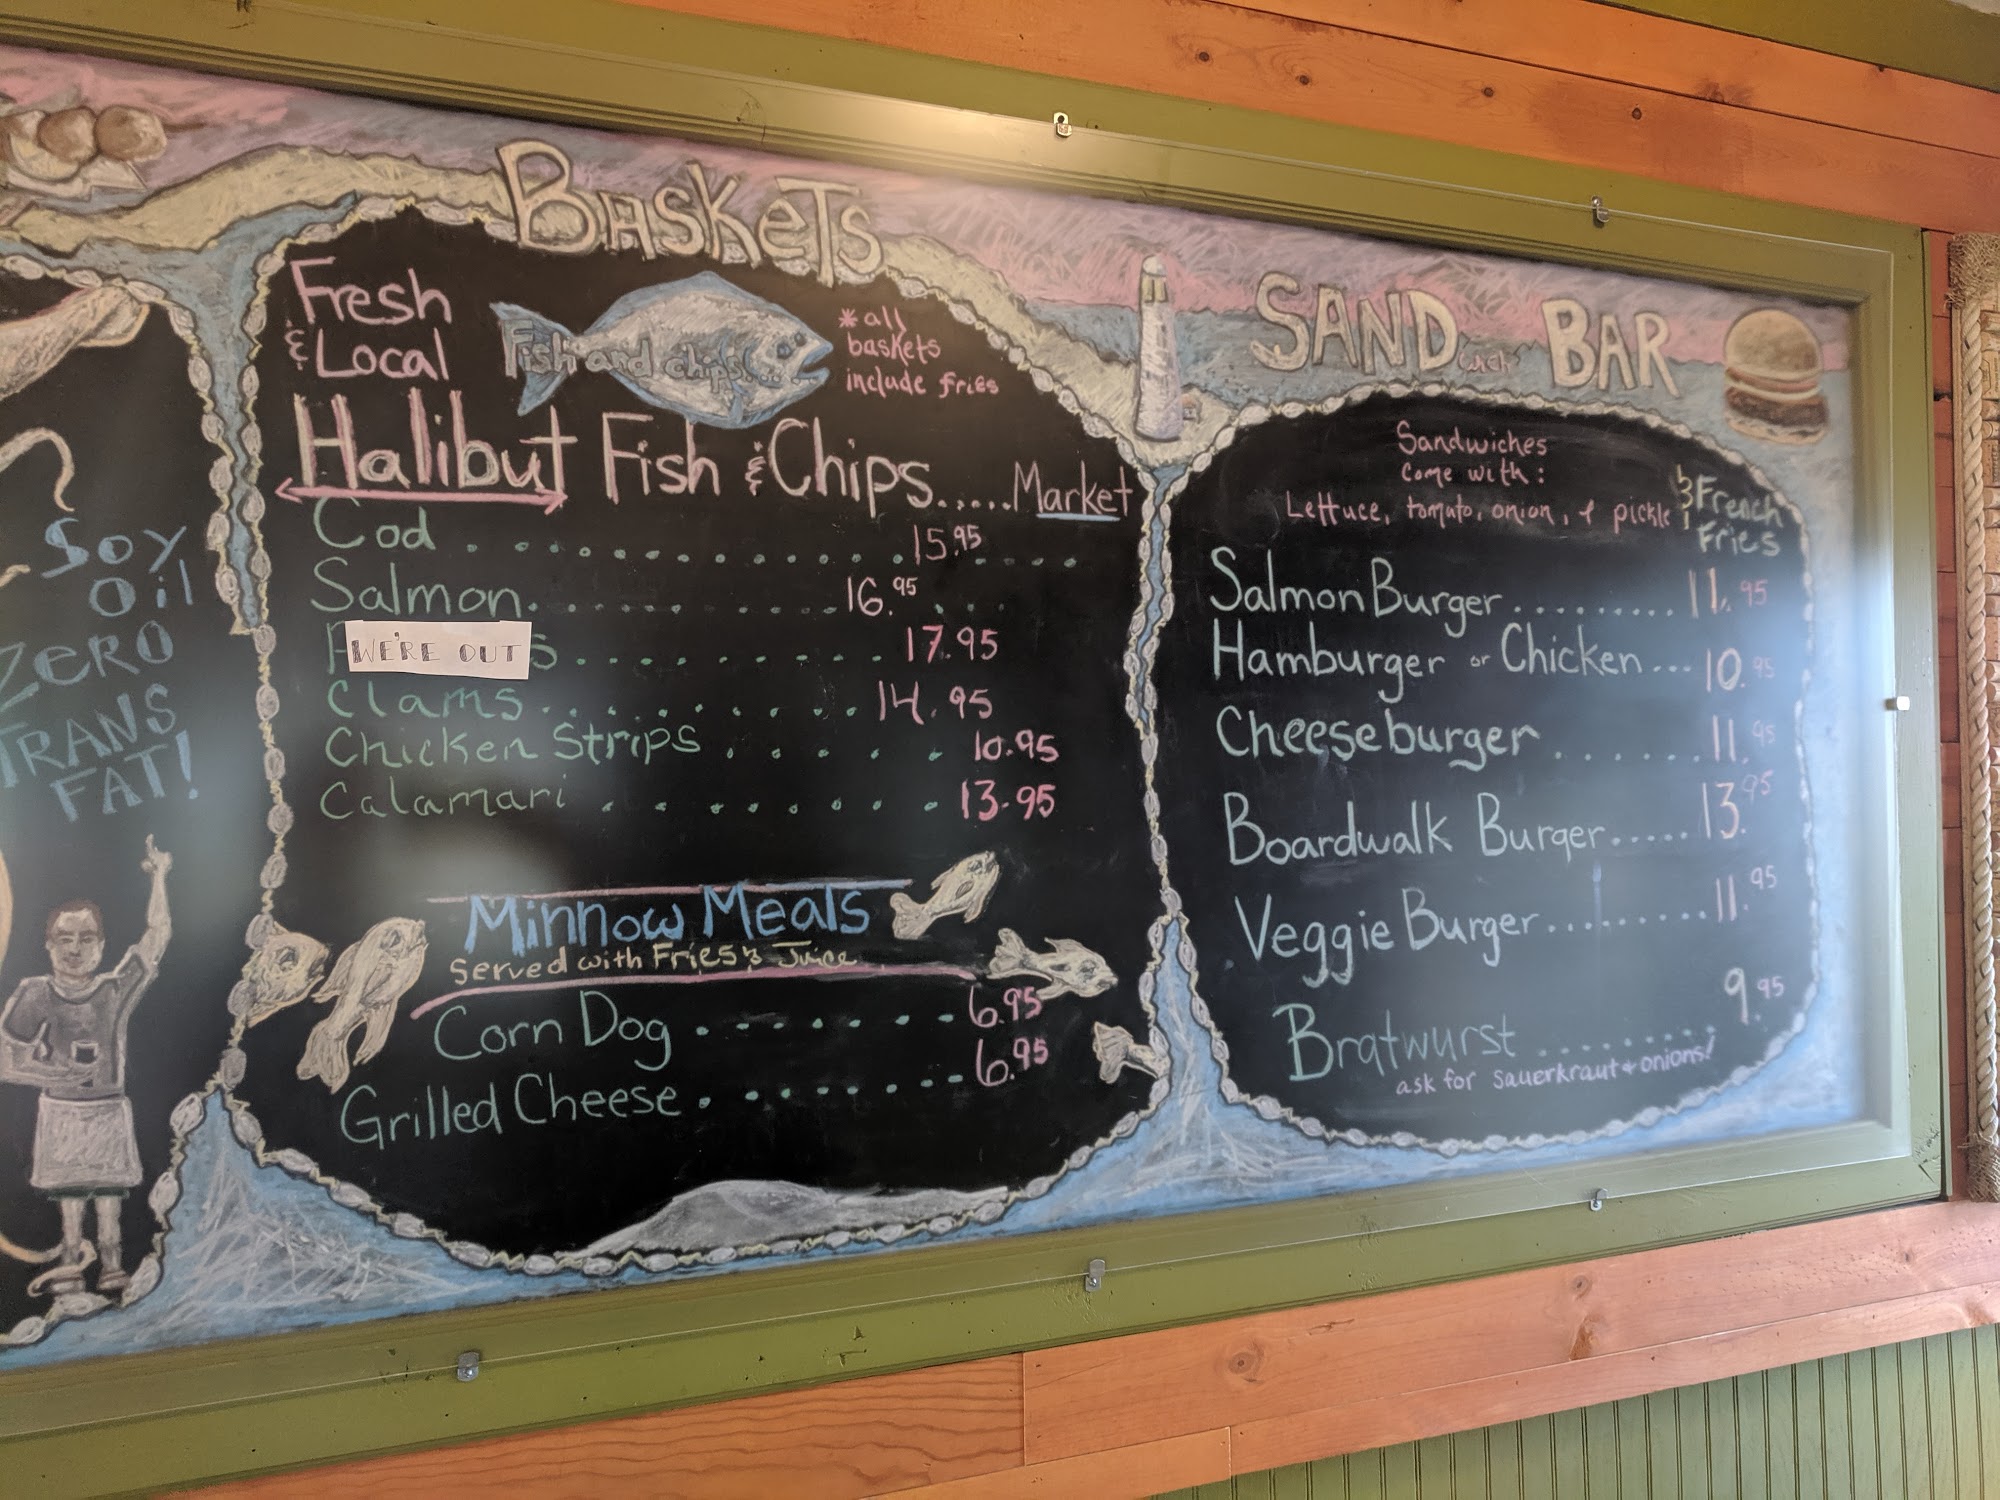 Soy
Oil
Zero
Trans
Fat!
Baskets
Fresh
& Local
Fish and chips...
*all
baskets
include fries
Halibut Fish & Chips.....Market
Cod . . . . . . . . . . . . . . 15.95 . . . .
Salmon. . . . . . . . . . . 16.95 . . .
WE'RE OUT . . . . . . . . . . . 17.95
Clams . . . . . . . . . . . 14.95
Chicken Strips . . . . . 10.95
Calamari . . . . . . . . . 13.95
Minnow Meals
Served with Fries & Juice
Corn Dog . . . . . . . . 6.95
Grilled Cheese . . . . . . . . 6.95
SANDwich BAR
Sandwiches
Come with:
Lettuce, tomato, onion, & pickle
& French
Fries
Salmon Burger . . . . . . . . . 11.95
Hamburger or Chicken... 10.95
Cheeseburger . . . . . . . 11.95
Boardwalk Burger..... 13.95
Veggie Burger.......... 11.95
Bratwurst .......... 9.95
ask for sauerkraut & onions!